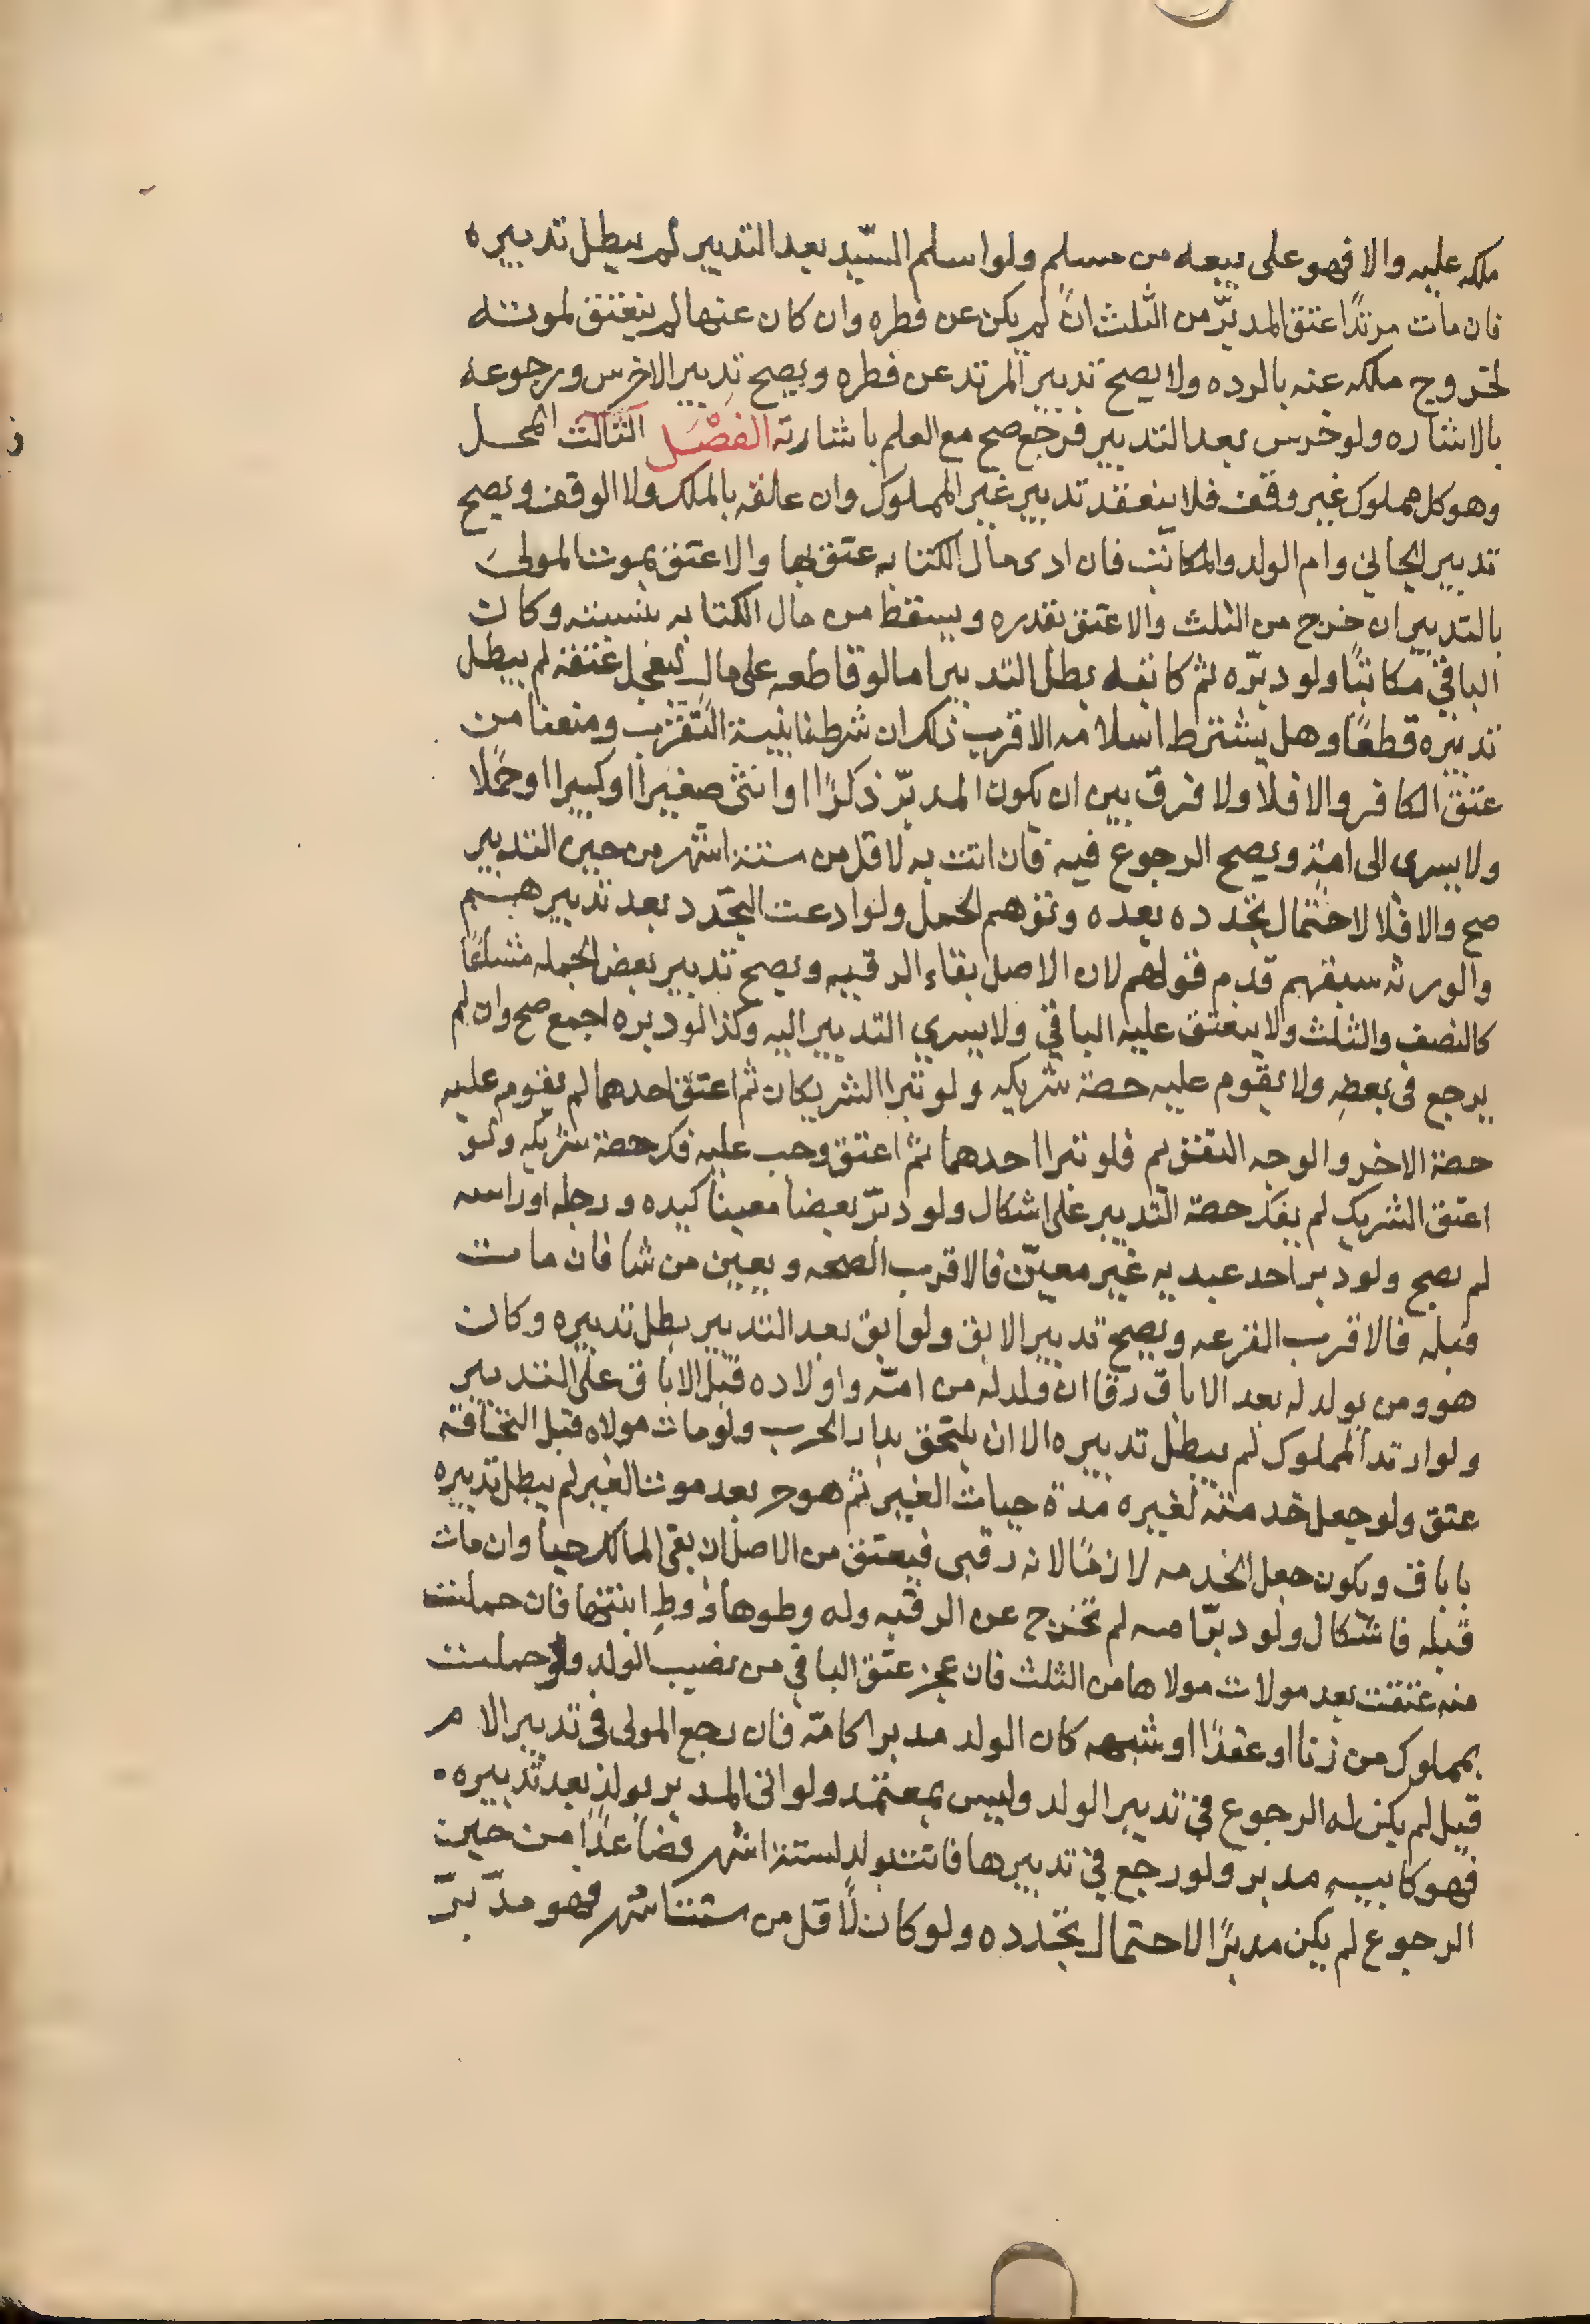 ملكه عليه والا فهو على بيعه من مسلم ولو اسلم السّيد بعد التدبير لم يبطل تدبيره
فان مات مرتدًا اعتق المدبّر من الثلث ان لم يكن عن فطره وان كان عنها لم ينعتق لموته
لخروج ملكه عنه بالرده ولا يصح تدبير المرتد عن فطره ويصح تدبير الاخرس ورجوعه
بالاشاره ولو خرس بعد التدبير فرجع صح مع العلم باشارته الفصْل الثالث المحل
وهو كل مملوك غير وقف فلا ينعقد تدبير غير المملوك وان علقه بالملك ولا الوقف ويصح
تدبير الجاني وام الولد والمكاتب فان ادى مال الكتابه عتق بها والا عتق بموت المولى
بالتدبير ان خرج من الثلث والا عتق بقدره ويسقط من مال الكتابه بنسبته وكان
الباقي مكاتبًا ولو دبّره ثم كاتبه بطل التدبير اما لو قاطعه على مال ليعجل عتقه لم يبطل
تدبيره قطعًا وهل يشترط اسلامه الاقرب ذلك ان شرطنا نية التقرب ومنعنا من
عتق الكافر والا فلا ولا فرق بين ان يكون المدبّر ذكرًا او انثى صغيرا او كبيرا او حملا
ولا يسرى الى امه ويصح الرجوع فيه فان اتت به لاقل من ستة اشهر من حين التدبير
صح والا فلا لاحتمال تجدده بعده وتوهم الحمل ولو ادعت التجدد بعد تدبيرهم
والورثه سبقهم قدم قولهم لان الاصل بقاء الرقيه ويصح تدبير بعض الجمله مشاعًا
كالنصف والثلث ولا ينعتق عليه الباقي ولا يسري التدبير اليه وكذا لو دبره اجمع صح وان لم
يرجع فى بعضه ولا يقوم عليه حصة شريكه ولو تبرا الشريكان ثم اعتق احدهما لم يقوم عليه
حصة الاخر والوجه التقويم فلو تبرا احدهما ثم اعتق وجب عليه فك حصة شريكه ولو
اعتق الشريك لم يفك حصة التدبير على اشكال ولو دبّر بعضا معينا كيده ورجله او راسه
لم يصح ولو دبر احد عبديه غير معيّن فالاقرب الصحه ويعين من شا فان مات
قبله فالاقرب القرعه ويصح تدبير الابق ولو ابق بعد التدبير بطل تدبيره وكان
هو ومن يولد له بعد الاباق رقا ان ولد له من امته واولاده قبل الاباق على التدبير
ولو ارتد المملوك لم يبطل تدبيره الا ان يلتحق بدار الحرب ولو مات مولاه قبل التحاقه
عتق ولو جعل خدمته لغيره مدة حيات الغير ثم هو حر بعد موت الغير لم يبطل تدبيره
باباق ويكون جعل الخدمه لازمًا لانه رقبى فيعتق من الاصل ان بقى المالك حيا وان مات
قبله فاشكال ولو دبّر امه لم تخرج عن الرقيه وله وطوها او وطِ ابنتها فان حملت
منه عتقت بعد مولات مولاها من الثلث فان عجز عتق الباقي من نصيب الولد ولو حملت
بمملوك من زنا او عقدًا او شبهه كان الولد مدبرا كامّه فان رجع المولى فى تدبير الام
قيل لم يكن له الرجوع في تدبير الولد وليس بمعتمد ولو اتى المدبر بولد بعد تدبيره
فهو كابيه مدبر ولو رجع في تدبيرها فاتت بولد لستة اشهر فصاعدًا من حين
الرجوع لم يكن مدبرًا لاحتمال تجدده ولو كان لاقل من ستة اشهر فهو مدّبرّ